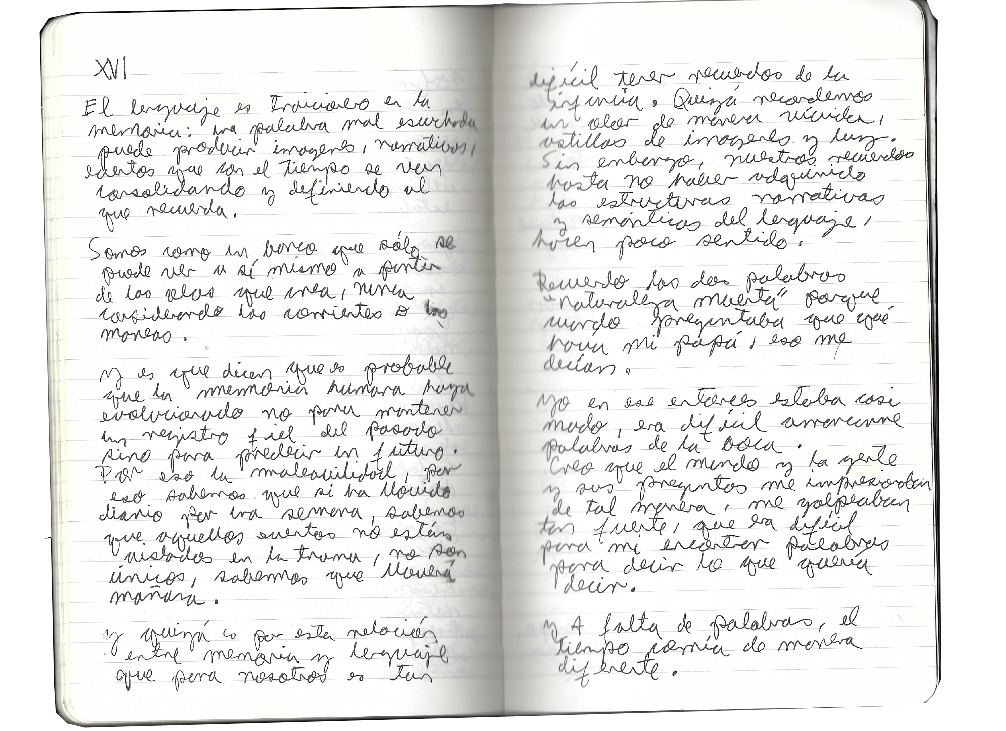 XVI
El lenguaje es Traicionero en la
memoria: una palabra mal escuchada
puede producir imagenes, narrativas,
eventos que con el Tiempo se van
consolidando y definiendo al
que recuerda.
Somos como un barco que sólo se
puede ver a sí mismo a partir
de las olas que crea, nunca
considerando las corrientes o las
mareas.
Y es que dicen que es probable
que la memoria humana haya
evolucionado no para mantener
un registro fiel del pasado
sino para predecir un futuro.
Por eso la maleabilidad, por
eso sabemos que si ha llovido
diario por una semana, sabemos
que aquellos eventos no están
aislados en la trama, no son
únicos, sabemos que lloverá
mañana.
Y quizá es por esta relación
entre memoria y lenguaje
que para nosotros es tan
difícil tener recuerdos de la
infancia. Quizá recordemos
un olor de manera vívida,
astillas de imagenes y luz.
Sin embargo, nuestros recuerdos
hasta no haber adquirido
las estructuras narrativas
y semánticas del lenguaje,
hacen poco sentido.
Recuerdo las dos palabras
"naturaleza muerta" porque
cuando preguntaba que qué
hacía mi papá, eso me
decían.
Yo en ese entonces estaba casi
mudo, era difícil arrancarme
palabras de la boca.
Creo que el mundo y la gente
y sus preguntas me impresionaban
de tal manera, me golpeaban
tan fuerte, que era difícil
para mi encontrar palabras
para decir lo que quería
decir.
Y A falta de palabras, el
tiempo corría de manera
diferente.